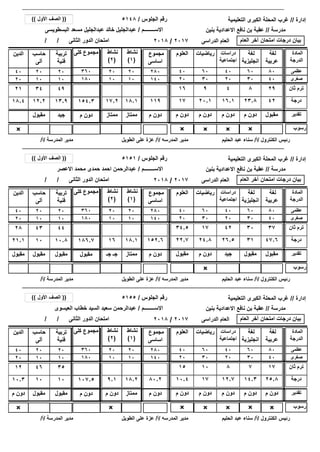 إدارة // غرب المحلة الكبرى التعليمية رقم الجلوس / ٥١٤٨ (( الصف الأول ))
مدرسة // عقبة بن نافع الاعدادية بنين الاســـــــم / عبدالجليل خالد عبدالجليل مسعد البسطويسى
بيان درجات امتحان أخر العام العام الدراسى ٢٠١٧ / ٢٠١٨ امتحان الدور الثانى / /
المادة لغة عربية لغة انجليزية دراسات اجتماعية رياضيات العلوم مجموع اساسى نشاط (١) نشاط (٢) مجموع كلى تربية فنية حاسب الى الدين
الدرجة
عظمى ٨٠ ٦٠ ٤٠ ٦٠ ٤٠ ٢٨٠ ٢٠ ٢٠ ٣٦٠ ٢٠ ٢٠ ٤٠
صغرى ٤٠ ٣٠ ٢٠ ٣٠ ٢٠ ١٤٠ ١٠ ١٠ ١٨٠ ١٠ ١٠ ٢٠
ترم ثان ٢٩ ٨ ٤ ٩ ١٦ ٤٩ ٣٤ ٢١
درجة ٤٢ ٢٣,٨ ١٦,١ ٢٠,١ ١٧ ١١٩ ١٨,٢ ١٧,٢ ١٥٤,٣ ١٣,٩ ١٢,٢ ١٨,٤
تقدير مقبول دون م دون م دون م دون م دون م ممتاز ممتاز دون م جيد مقبول
رسوب × × × × ×
رئيس الكنترول // سناء عبد الحليم مدرسة // عزة على الطويل مدير المدرسة //
إدارة // غرب المحلة الكبرى التعليمية رقم الجلوس / ٥١٥١ (( الصف الأول ))
مدرسة // عقبة بن نافع الاعدادية بنين الاســـــــم / عبدالرحمن احمد حمدى محمد الاعصر
بيان درجات امتحان أخر العام العام الدراسى ٢٠١٧ / ٢٠١٨ امتحان الدور الثانى / /
المادة لغة عربية لغة انجليزية دراسات اجتماعية رياضيات العلوم مجموع اساسى نشاط (١) نشاط (٢) مجموع كلى تربية فنية حاسب الى الدين
الدرجة
عظمى ٨٠ ٦٠ ٤٠ ٦٠ ٤٠ ٢٨٠ ٢٠ ٢٠ ٣٦٠ ٢٠ ٢٠ ٤٠
صغرى ٤٠ ٣٠ ٢٠ ٣٠ ٢٠ ١٤٠ ١٠ ١٠ ١٨٠ ١٠ ١٠ ٢٠
ترم ثان ٣٧ ٣٠ ٤٢ ١٧ ٣٤,٥ ٤٤ ٤٣ ٢٨
درجة ٤٧,٦ ٣١ ٢٦,٥ ٢٤,٨ ٢٢,٧ ١٥٢,٦ ١٨,١ ١٦ ١٨٦,٧ ١٠,٨ ١٠ ٢١,١
تقدير مقبول مقبول جيد دون م مقبول مقبول ممتاز جـ جـ مقبول مقبول مقبول مقبول
رسوب ×
رئيس الكنترول // سناء عبد الحليم مدرسة // عزة على الطويل مدير المدرسة //
إدارة // غرب المحلة الكبرى التعليمية رقم الجلوس / ٥١٥٥ (( الصف الأول ))
مدرسة // عقبة بن نافع الاعدادية بنين الاســـــــم / عبدالرحمن سعيد السيد خطاب العيسوى
بيان درجات امتحان أخر العام العام الدراسى ٢٠١٧ / ٢٠١٨ امتحان الدور الثانى / /
المادة لغة عربية لغة انجليزية دراسات اجتماعية رياضيات العلوم مجموع اساسى نشاط (١) نشاط (٢) مجموع كلى تربية فنية حاسب الى الدين
الدرجة
عظمى ٨٠ ٦٠ ٤٠ ٦٠ ٤٠ ٢٨٠ ٢٠ ٢٠ ٣٦٠ ٢٠ ٢٠ ٤٠
صغرى ٤٠ ٣٠ ٢٠ ٣٠ ٢٠ ١٤٠ ١٠ ١٠ ١٨٠ ١٠ ١٠ ٢٠
ترم ثان ١٧ ٧ ٨ ١٠ ١٥ ٣٥ ٤٦ ١٢
درجة ٢٥,٨ ١٤,٣ ١٢,٧ ١٧ ١٠,٤ ٨٠,٢ ١٨,٢ ٩,١ ١٠٧,٥ ١٠ ١٠ ١٠,٣
تقدير دون م دون م دون م دون م دون م دون م ممتاز دون م دون م مقبول مقبول دون م
رسوب × × × × × ×
رئيس الكنترول // سناء عبد الحليم مدرسة // عزة على الطويل مدير المدرسة //